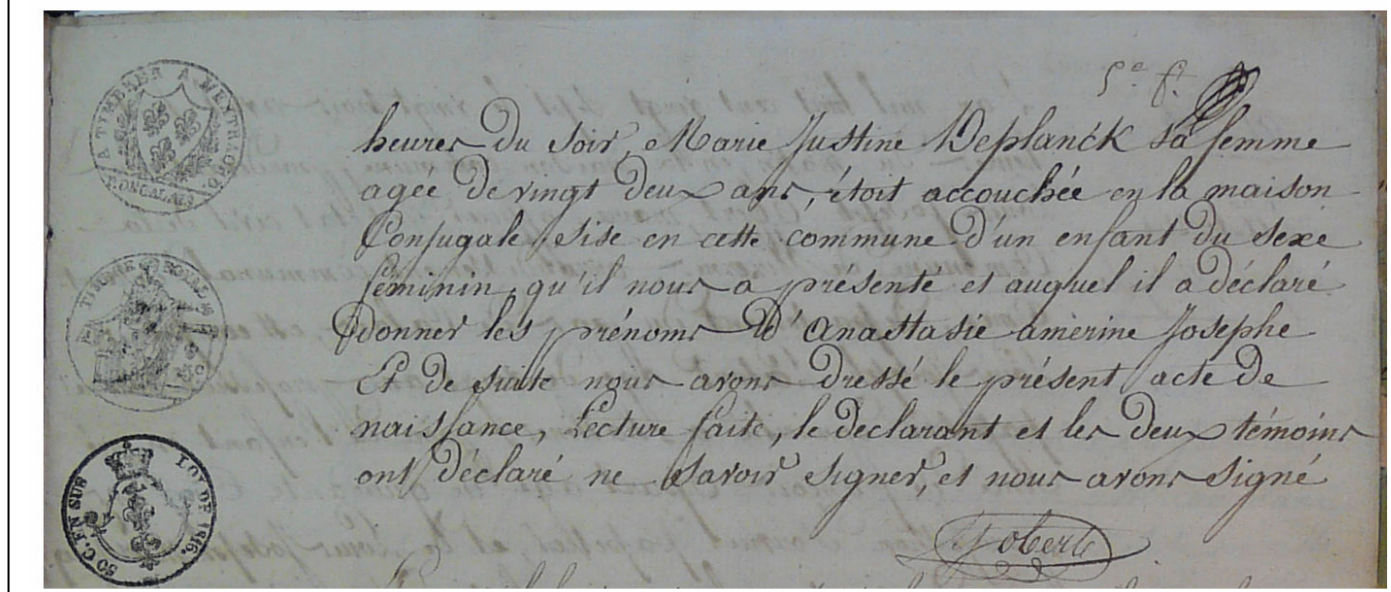 5e ft
A TIMBRER A L'EXTRAORD.
heures du soir, Marie Justine Deplanck sa femme
agée de vingt deux ans, étoit accouchée en la maison
Conjugale sise en cette commune d'un enfant du sexe
feminin, qu'il nous a présenté et auquel il a déclaré
donner les prénoms d'Anastasie amérine Josephe
Et de suite nous avons dressé le présent acte de
naissance, Lecture faite, le declarant et les deux témoins
ont déclaré ne savoir signer, et nous avons signé
TIMBRE ROYAL
50 C. EN SUS
LOI DE 1816.